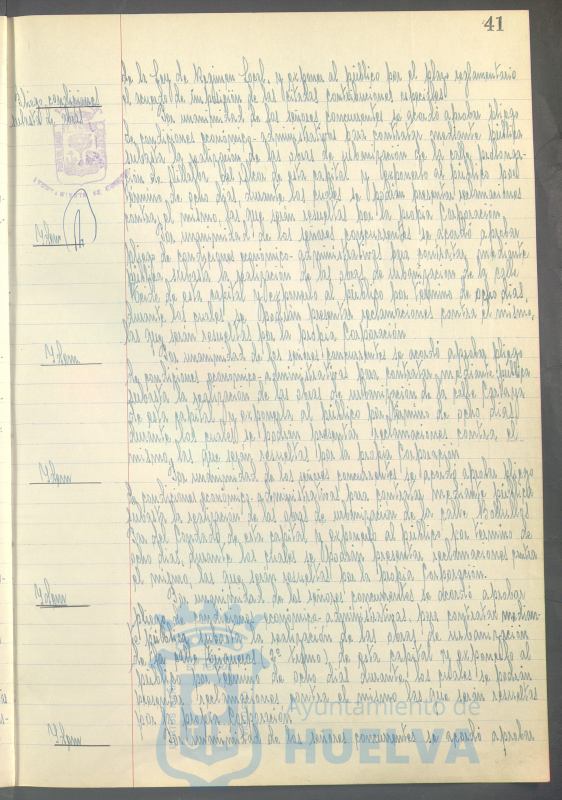 41
de la Ley de Regimen Local, y exponer al público por el plazo reglamentario
el acuerdo de imposición de las citadas contribuciones especiales.
Pliego condiciones
Por unanimidad de los señores concurrentes se acordó aprobar Pliego
de condiciones económico-administrativas para contratar mediante pública
subasta la realización de las obras de urbanización de la calle prolonga-
ción de del de esta capital y exponerlo al público por
término de ocho días, durante los cuales se podrán presentar reclamaciones
contra el mismo, las que serán resueltas por la propia Corporación.
Idem
Por unanimidad de los señores concurrentes se acordó aprobar
pliego de condiciones económico-administrativas para contratar mediante
pública subasta la realización de las obras de urbanización de la calle
de esta capital y exponerlo al público por término de ocho días,
durante los cuales se podrán presentar reclamaciones contra el mismo,
las que serán resueltas por la propia Corporación
Idem
Por unanimidad de los señores concurrentes se acordó aprobar pliego
de condiciones económico-administrativas para contratar mediante pública
subasta la realización de las obras de urbanización de la calle
de esta capital y exponerlo al público por término de ocho días
durante los cuales se podrán presentar reclamaciones contra el
mismo, las que serán resueltas por la propia Corporación
Idem
Por unanimidad de los señores concurrentes se acordó aprobar Pliego
de condiciones económico-administrativas para contratar mediante pública
subasta la realización de las obras de urbanización de la calle Bollullos
Par del Condado de esta capital y exponerlo al público por término de
ocho días, durante los cuales se podrán presentar reclamaciones contra
el mismo, las que serán resueltas por la propia Corporación.
Idem
Por unanimidad de los señores concurrentes se acordó aprobar
pliego de condiciones económico-administrativas para contratar median-
te pública subasta la realización de las obras de urbanización
de la calle 2º tramo, de esta capital y exponerlo al
público por término de ocho días durante los cuales se podrán
presentar reclamaciones contra el mismo las que serán resueltas
por la propia Corporación
Idem
Por unanimidad de los señores concurrentes se acordó aprobar
Ayuntamiento de
HUELVA